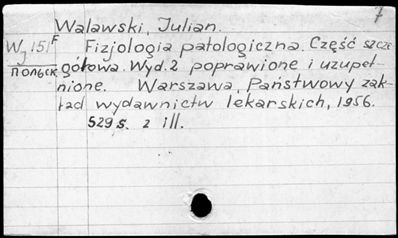 7
Walawski, Julian.
Wg 151F Fizjologia patologiczna. Część szcze-
польск. gółowa. Wyd. 2 poprawione i uzupeł-
nione. Warszawa, Państwowy zak-
ład wydawnictw lekarskich, 1956.
529 s. z ill.